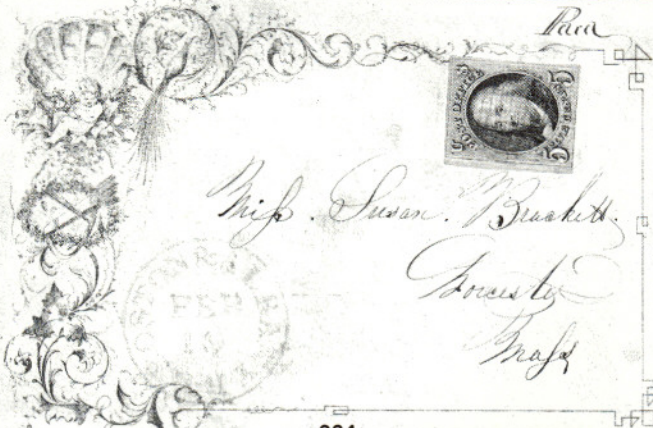 Paid
POST OFFICE
FIVE CENTS
5 5
Miss. Susan. Brackett.
Worcester
Mass
FEB